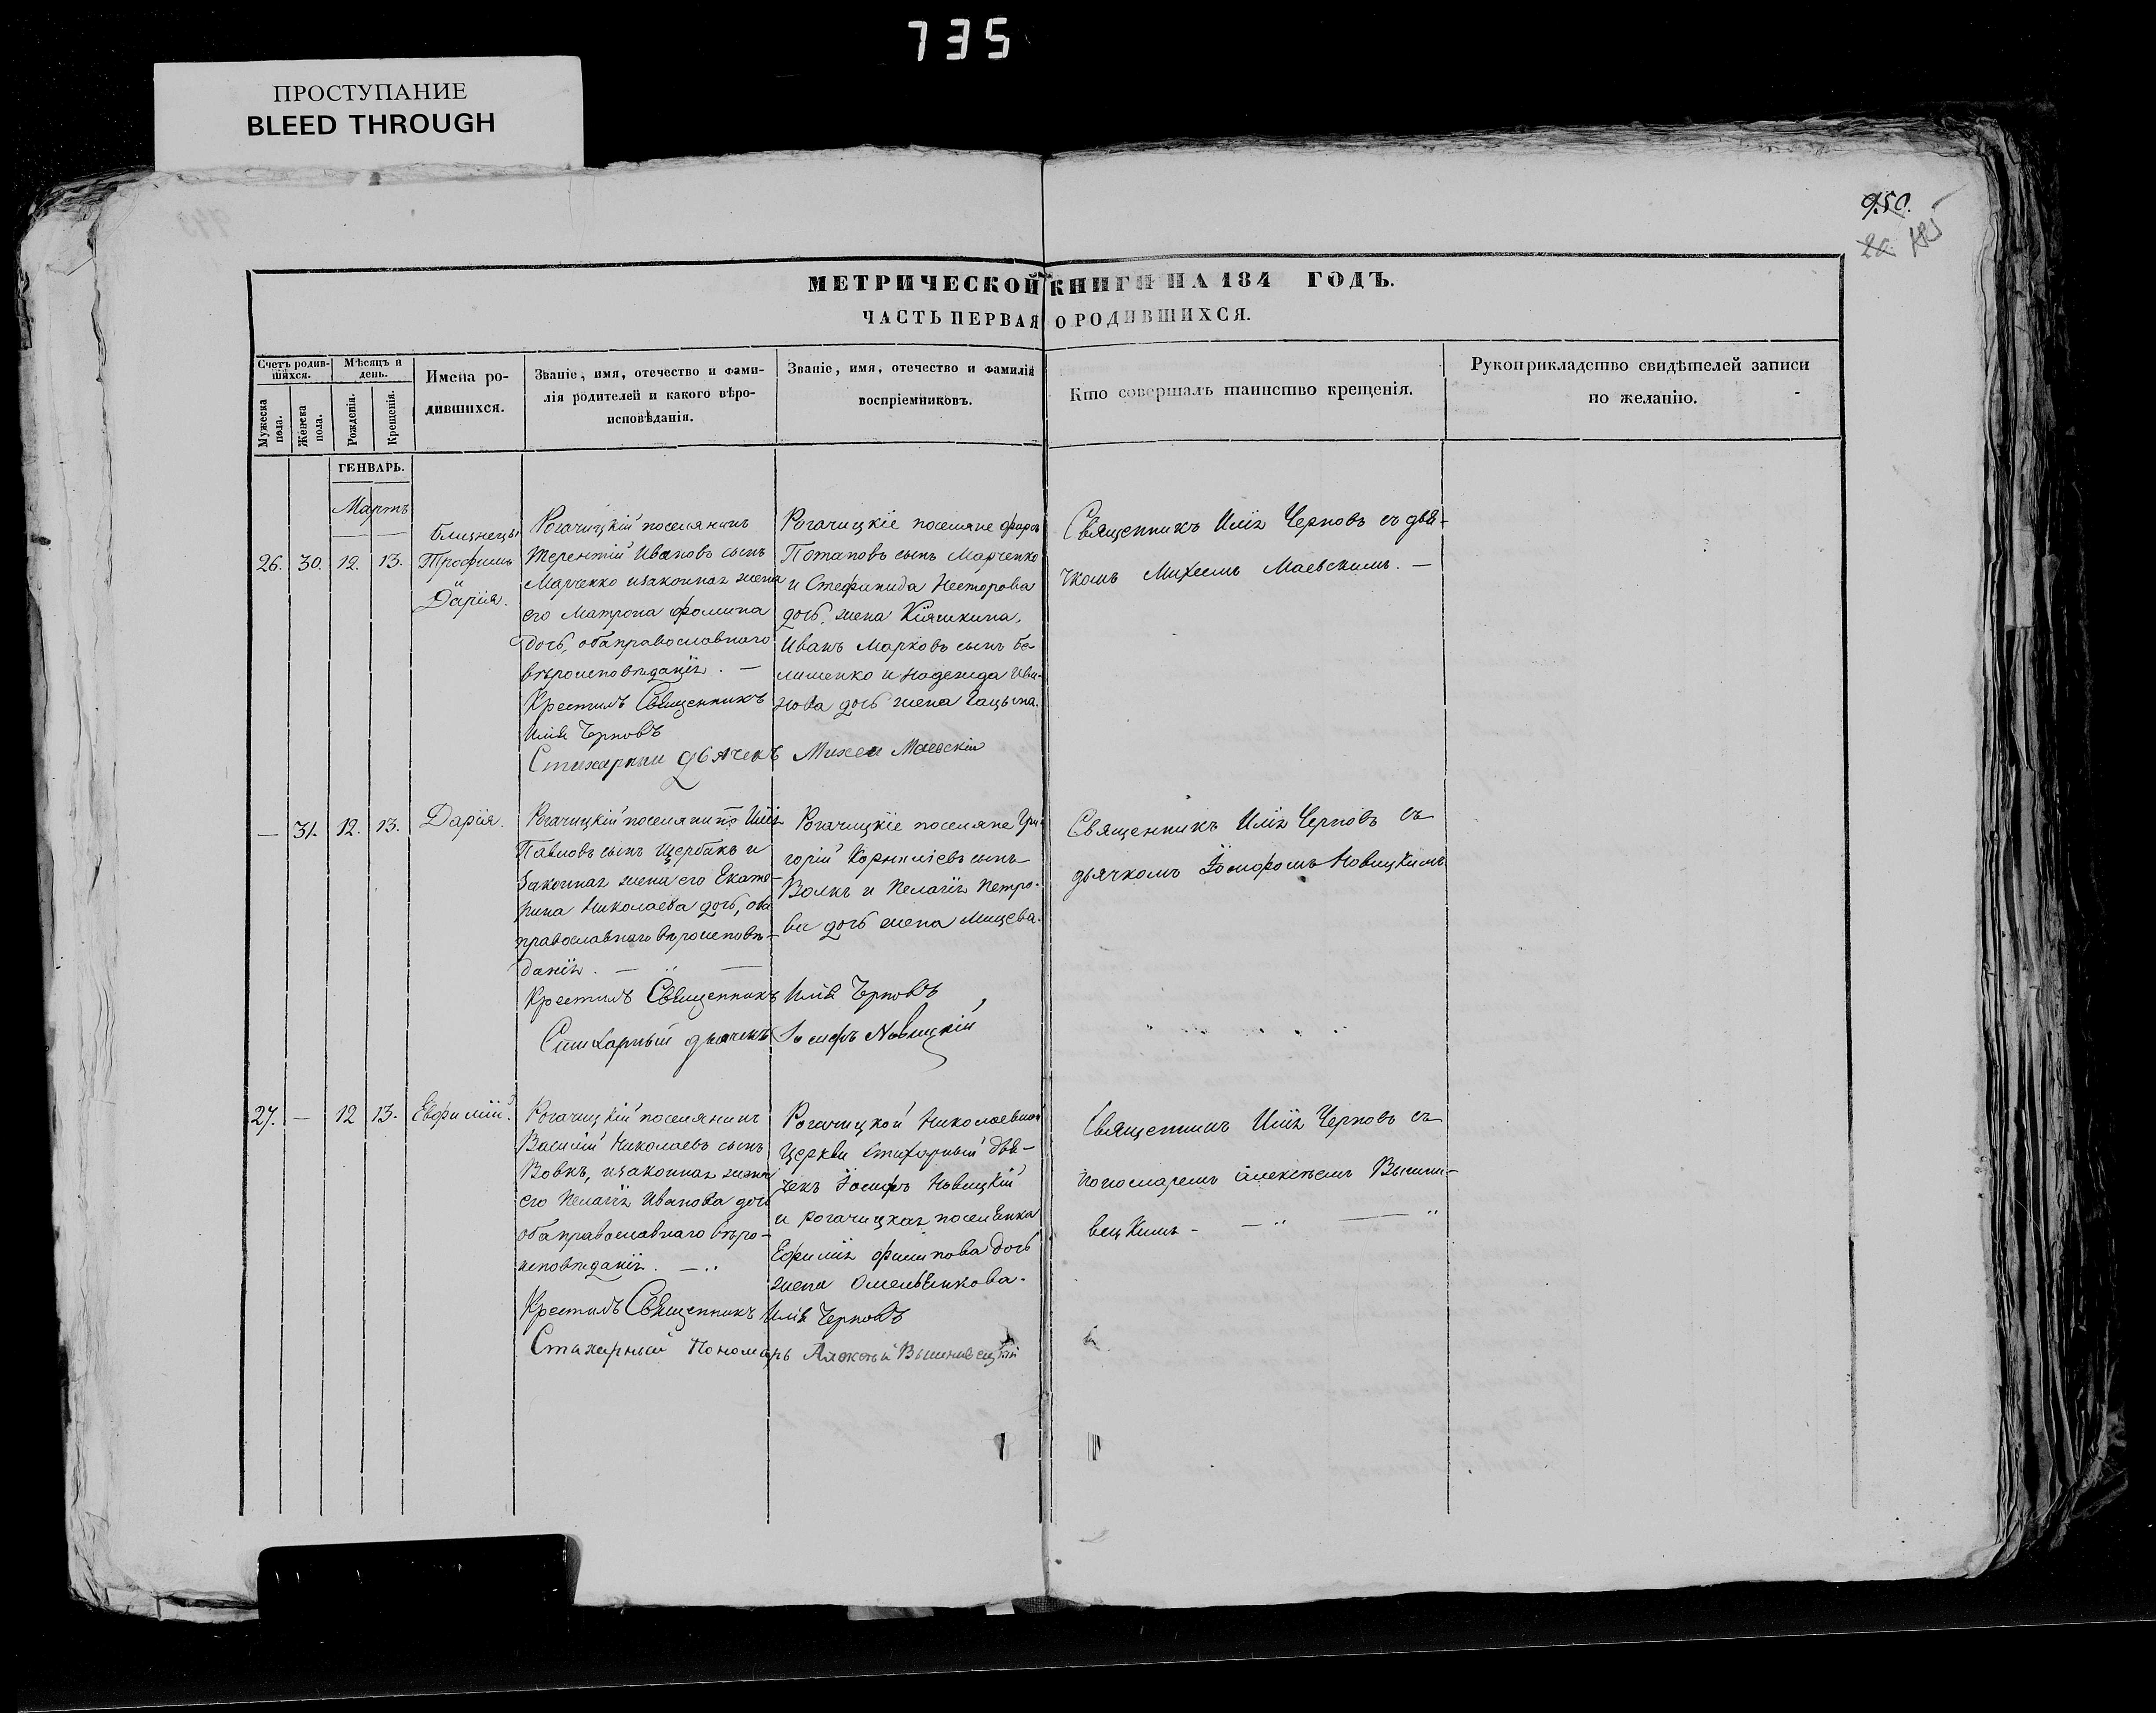 735
ПРОСТУПАНИЕ
BLEED THROUGH
950.
20. 185
МЕТРИЧЕСКОЙ КНИГИ НА 184 ГОДЪ.
ЧАСТЬ ПЕРВАЯ О РОДИВШИХСЯ.
Счетъ родив-
шихся.
Мужеска пола.
Женска пола.
Мѣсяцъ и
день.
Рожденія.
Крещенія.
Имена ро-
дившихся.
Званіе, имя, отечество и фами-
лія родителей и какого вѣро-
исповѣданія.
Званіе, имя, отечество и фамилія
воспріемниковъ.
Кто совершалъ таинство крещенія.
Рукоприкладство свидѣтелей записи
по желанію.
ГЕНВАРЬ.
Мартъ
26. 30. 12. 13.
Близнецы
Трофимъ
и
Дарія.
Рогачицкій поселянинъ
Терентій Ивановъ сынъ
Марченко и законная жена
его Матрона Фомина
дочь, оба православнаго
вѣроисповѣданія. —
Крестилъ Священникъ
Илія Черновъ
Стихарный дьячекъ Михей Маевскій
Рогачицкіе поселяне
Потаповъ сынъ Марченко
и Стефанида Несторова
дочь, жена Кіяшкина,
Иванъ Марковъ сынъ Бе-
лишенко и Надежда Ива-
нова дочь жена Гацына.
Священникъ Илія Черновъ съ дья-
чкомъ Михеемъ Маевскимъ. —
— 31. 12. 13. Дарія.
Рогачицкій поселянинъ Илія
Павловъ сынъ Щербакъ и
законная жена его Екате-
рина Николаева дочь, оба
православнаго вѣроисповѣ-
данія. —
Крестилъ Священникъ Илія Черновъ
Стихарный дьячекъ Іосифъ Новицкій
Рогачицкіе поселяне Гри-
горій Корниліевъ сынъ
Волкъ и Пелагія Петро-
ва дочь жена Мищева.
Священникъ Илія Черновъ съ
дьячкомъ Іосифомъ Новицкимъ
27. — 12 13. Евфимій.
Рогачицкій поселянинъ
Василій Николаевъ сынъ
Вовкъ, и законная жена
его Пелагія Иванова дочь
оба православнаго вѣро-
исповѣданія. —
Крестилъ Священникъ Илія Черновъ
Стихарный Пономарь Алексѣй Вышневецкій
Рогачицкой Николаевской
Церкви Стихарный Дья-
чекъ Іосифъ Новицкій
и рогачицкая поселенка
Ефимія Филипова дочь
жена Омельченкова.
Священникъ Илія Черновъ съ
пономаремъ Алексѣемъ Вышни-
вецкимъ —